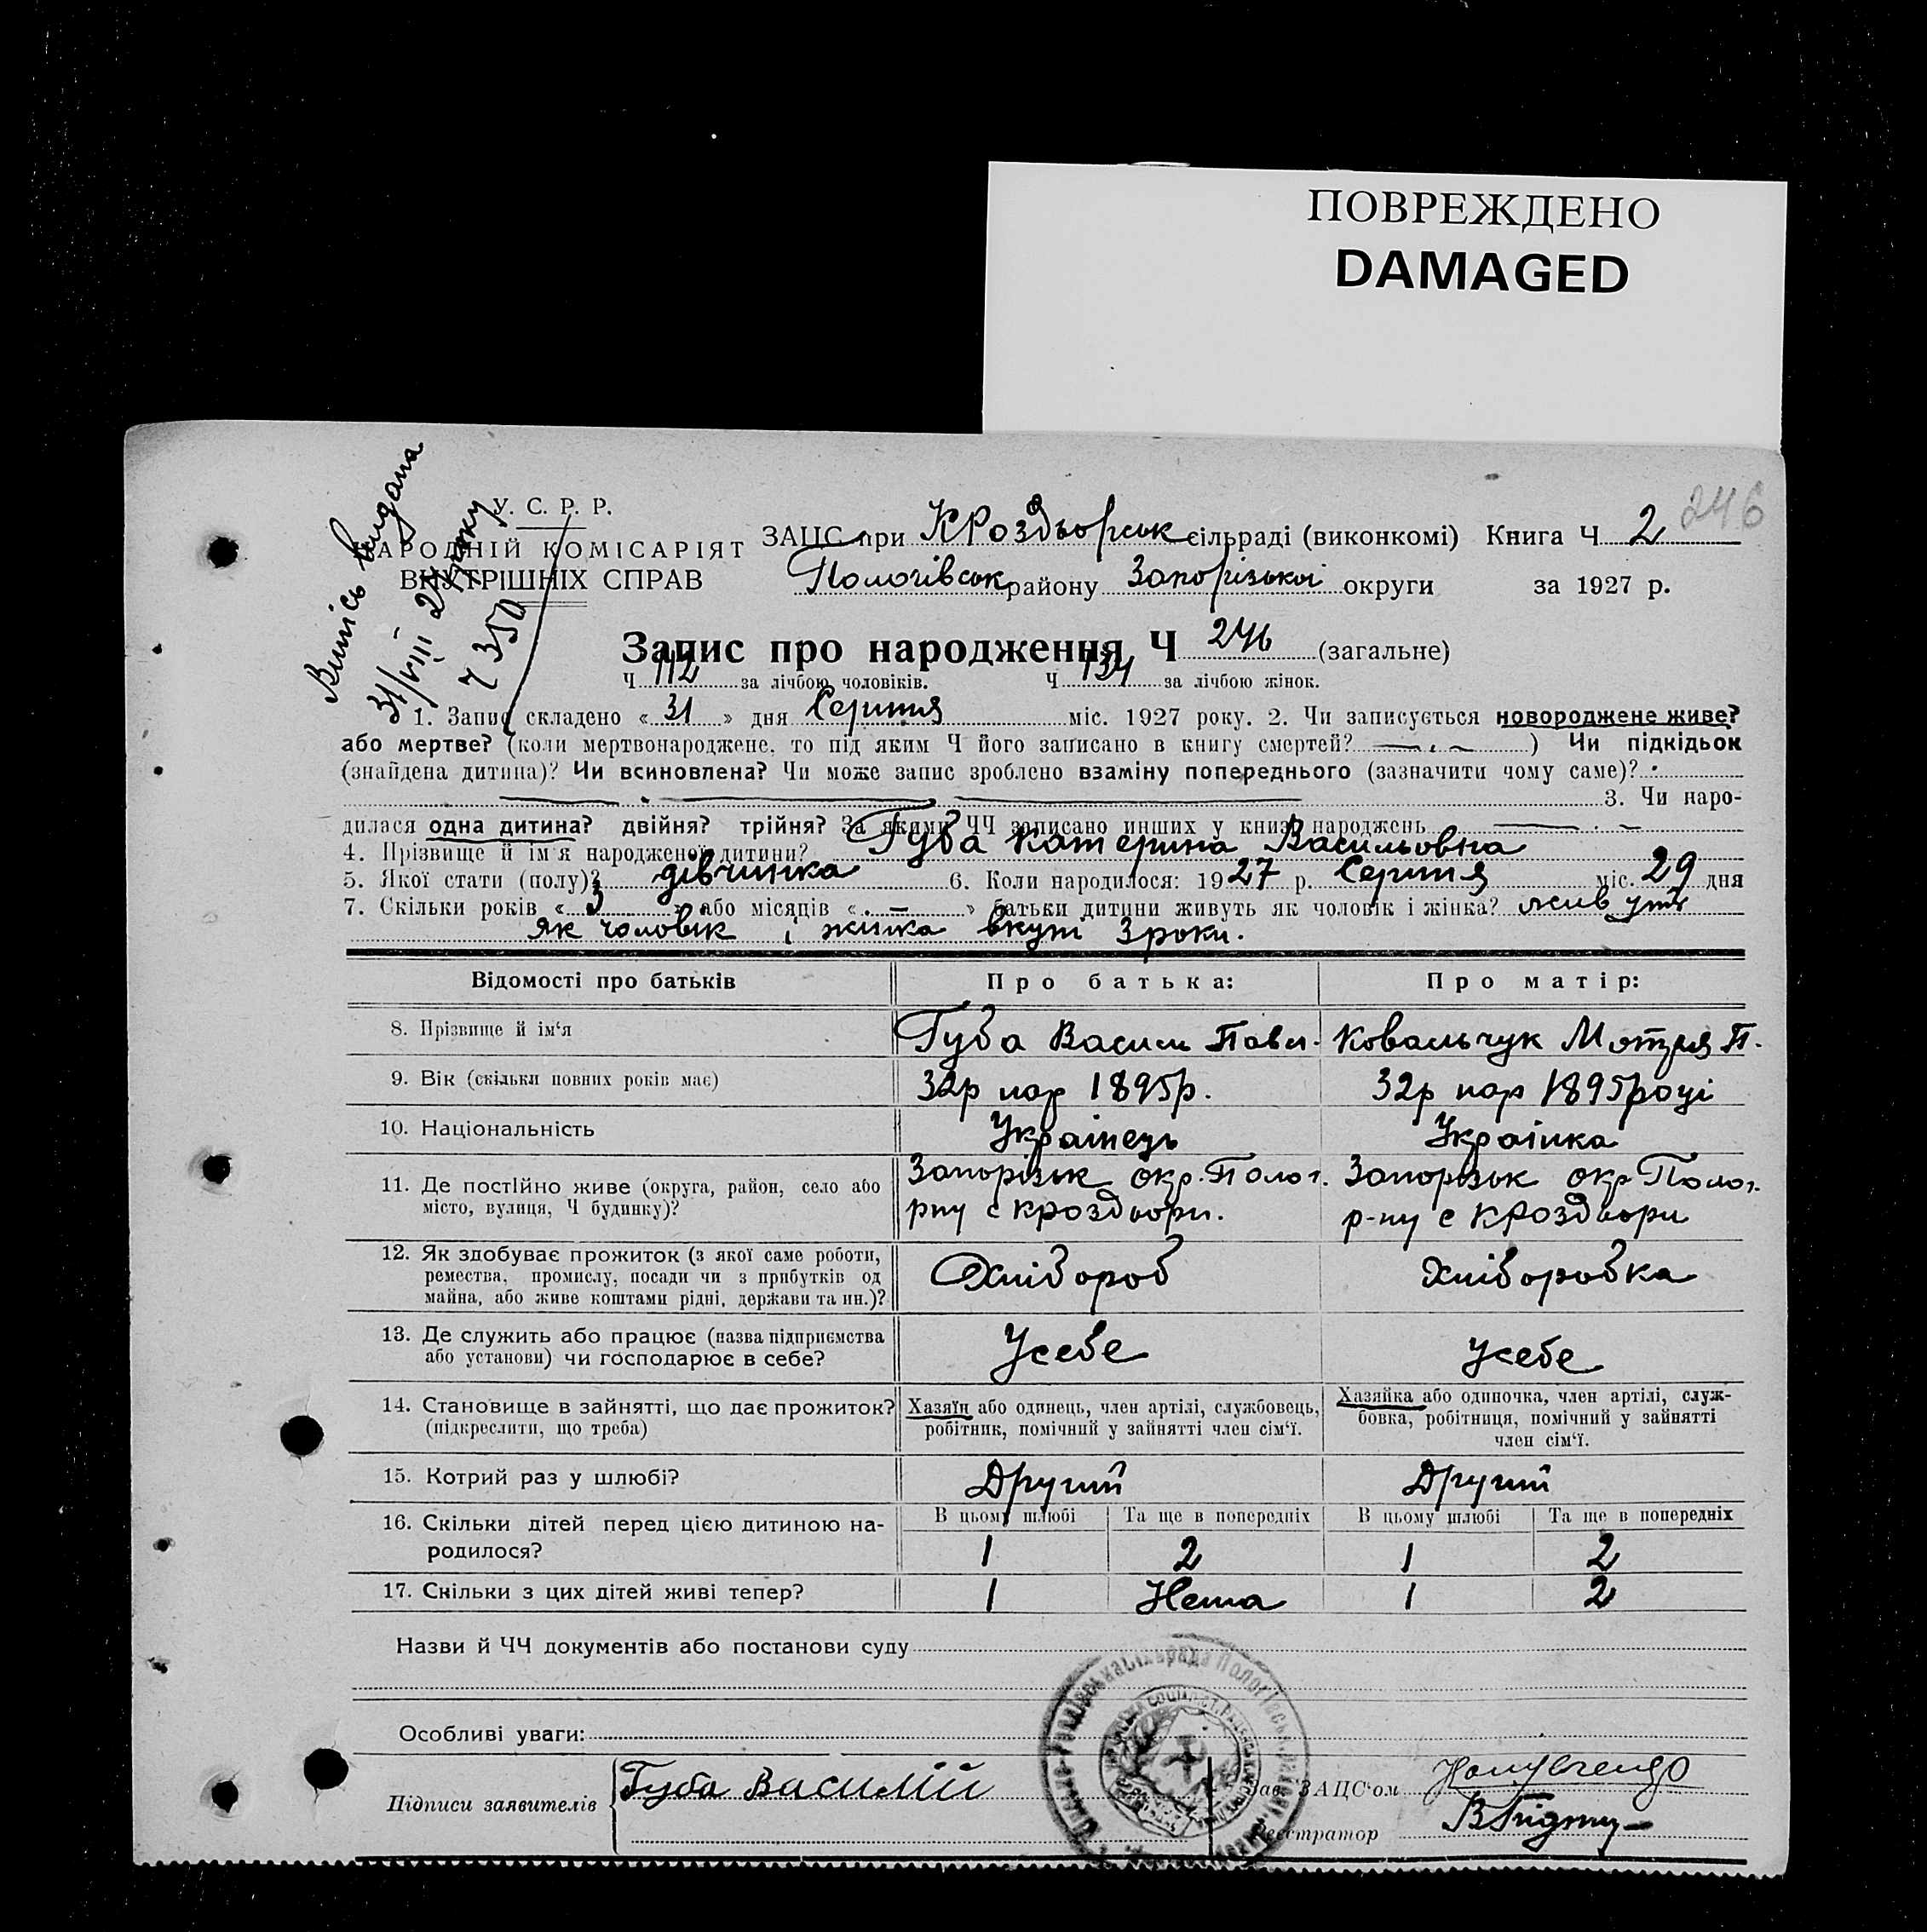 ПОВРЕЖДЕНО
DAMAGED
246
Випись видана
31/VIII 27 року
Ч 350
У. С. Р. Р.
НАРОДНІЙ КОМІСАРІЯТ
ВНУТРІШНІХ СПРАВ
ЗАЦС при КРоздорськ сільраді (виконкомі) Книга Ч 2
Пологівськ району Запорізької округи за 1927 р.
Запис про народження Ч 246 (загальне)
Ч 112 за лічбою чоловіків. Ч 134 за лічбою жінок.
1. Запис складено « 31 » дня Серпня міс. 1927 року. 2. Чи записується новороджене живе?
або мертве? (коли мертвонароджене, то під яким Ч його записано в книгу смертей? — ) Чи підкідьок
(знайдена дитина)? Чи всиновлена? Чи може запис зроблено взаміну попереднього (зазначити чому саме)?
3. Чи наро-
дилася одна дитина? двійня? трійня? За якими ЧЧ записано инших у книзі народжень —
4. Прізвище й ім'я народженої дитини? Губа Катерина Васильовна
5. Якої стати (полу)? дівчинка 6. Коли народилося: 1927 р. Серпня міс. 29 дня
7. Скільки років « 3 » або місяців « — » батьки дитини живуть як чоловік і жінка? живуть
як чоловік і жинка вкупі 3 роки.
Відомості про батьків Про батька: Про матір:
8. Прізвище й ім'я Губа Васил Павл. Ковальчук Мотря П.
9. Вік (скільки повних років має) 32р нар 1895р. 32р нар 1895році
10. Національність Українець Українка
11. Де постійно живе (округа, район, село або Запорізьк окр. Полог. Запорізьк окр Полог.
місто, вулиця, Ч будинку)? рну с Кроздори. р-ну с КРоздори
12. Як здобуває прожиток (з якої саме роботи,
ремества, промислу, посади чи з прибутків од Хлібороб Хліборобка
майна, або живе коштами рідні, держави та ин.)?
13. Де служить або працює (назва підприємства
або установи) чи господарює в себе? Усебе Усебе
14. Становище в зайнятті, що дає прожиток? Хазяїн або одинець, член артілі, службовець, Хазяйка або одиночка, член артілі, служ-
(підкреслити, що треба) робітник, помічний у зайнятті член сім'ї. бовка, робітниця, помічний у зайнятті
член сім'ї.
15. Котрий раз у шлюбі? Другий Другий
16. Скільки дітей перед цією дитиною на- В цьому шлюбі Та ще в попередніх В цьому шлюбі Та ще в попередніх
родилося? 1 2 1 2
17. Скільки з цих дітей живі тепер? 1 Нема 1 2
Назви й ЧЧ документів або постанови суду
Особливі уваги:
Підписи заявителів Губа Василій Зав. ЗАЦС'ом
Реєстратор